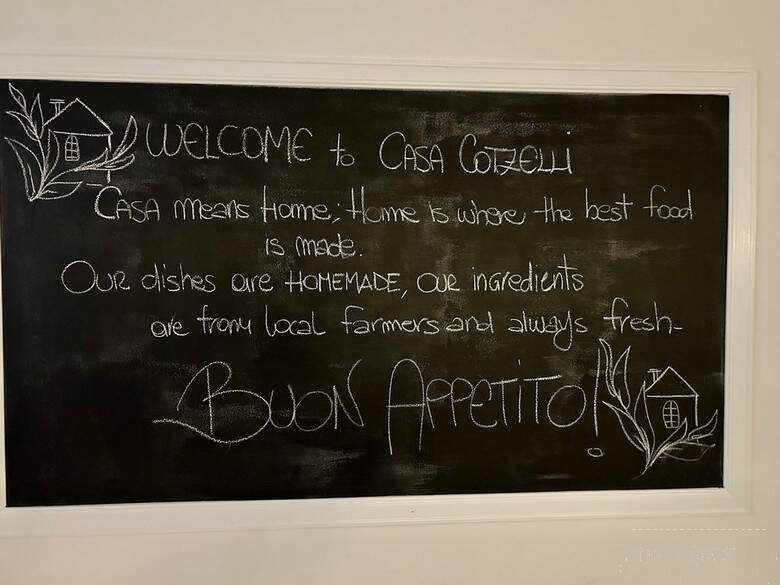 WELCOME to CASA COTZELLI
CASA means Home; Home is where the best food
is made.
OUR dishes are HOMEMADE, our ingredients
are from local farmers and always fresh-
BUON APPETITO!